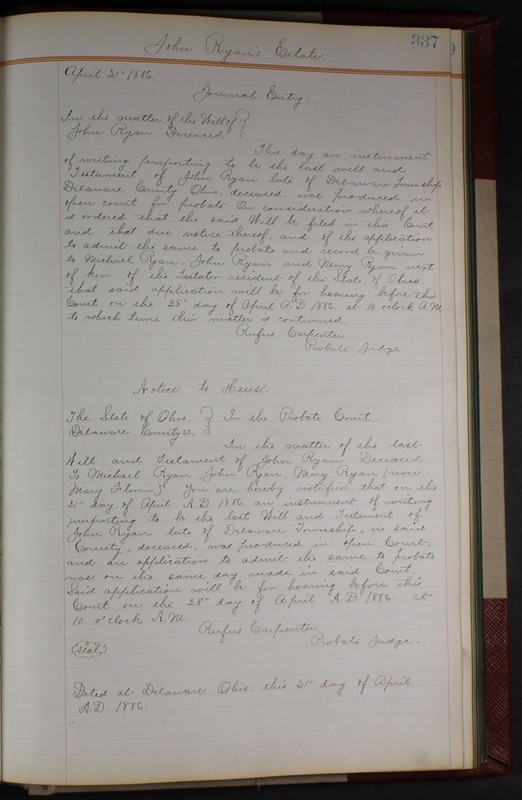 337
John Ryan's Estate.
April 21st 1886.
Journal Entry.
In the matter of the Will of
John Ryan Deceased.
This day an instrument
of writing purporting to be the last will and
Testament of John Ryan late of Delaware Township
Delaware County Ohio, deceased, was produced in
open court for probate On consideration whereof it
is ordered that the said Will be filed in this Court
and that due notice thereof, and of the application
to admit the same to probate and record be given
to Michael Ryan, John Ryan and Mary Ryan next
of kin of the Testator resident of the State of Ohio.
that said application will be for hearing before this
Court on the 28th day of April A.D. 1886. at 10 oclock A.M.
to which time this matter is continued.
Rufus Carpenter
Probate Judge
Notice to Heirs.
The State of Ohio. In the Probate Court.
Delaware County ss.
In the matter of the last
Will and Testament of John Ryan Deceased
To Michael Ryan, John Ryan, Mary Ryan (now
Mary) You are hereby notified that on the
21st day of April A.D. 1886. an instrument of writing
purporting to be the last Will and Testament of
John Ryan late of Delaware Township, in said
County, deceased, was produced in open Court,
and an application to admit the same to probate
was on the same day made in said Court.
Said application will be for hearing before this
Court on the 28th day of April A.D. 1886. at
10 o'clock A.M.
Rufus Carpenter
(seal) Probate Judge.
Dated at Delaware Ohio, this 21st day of April
A.D. 1886.